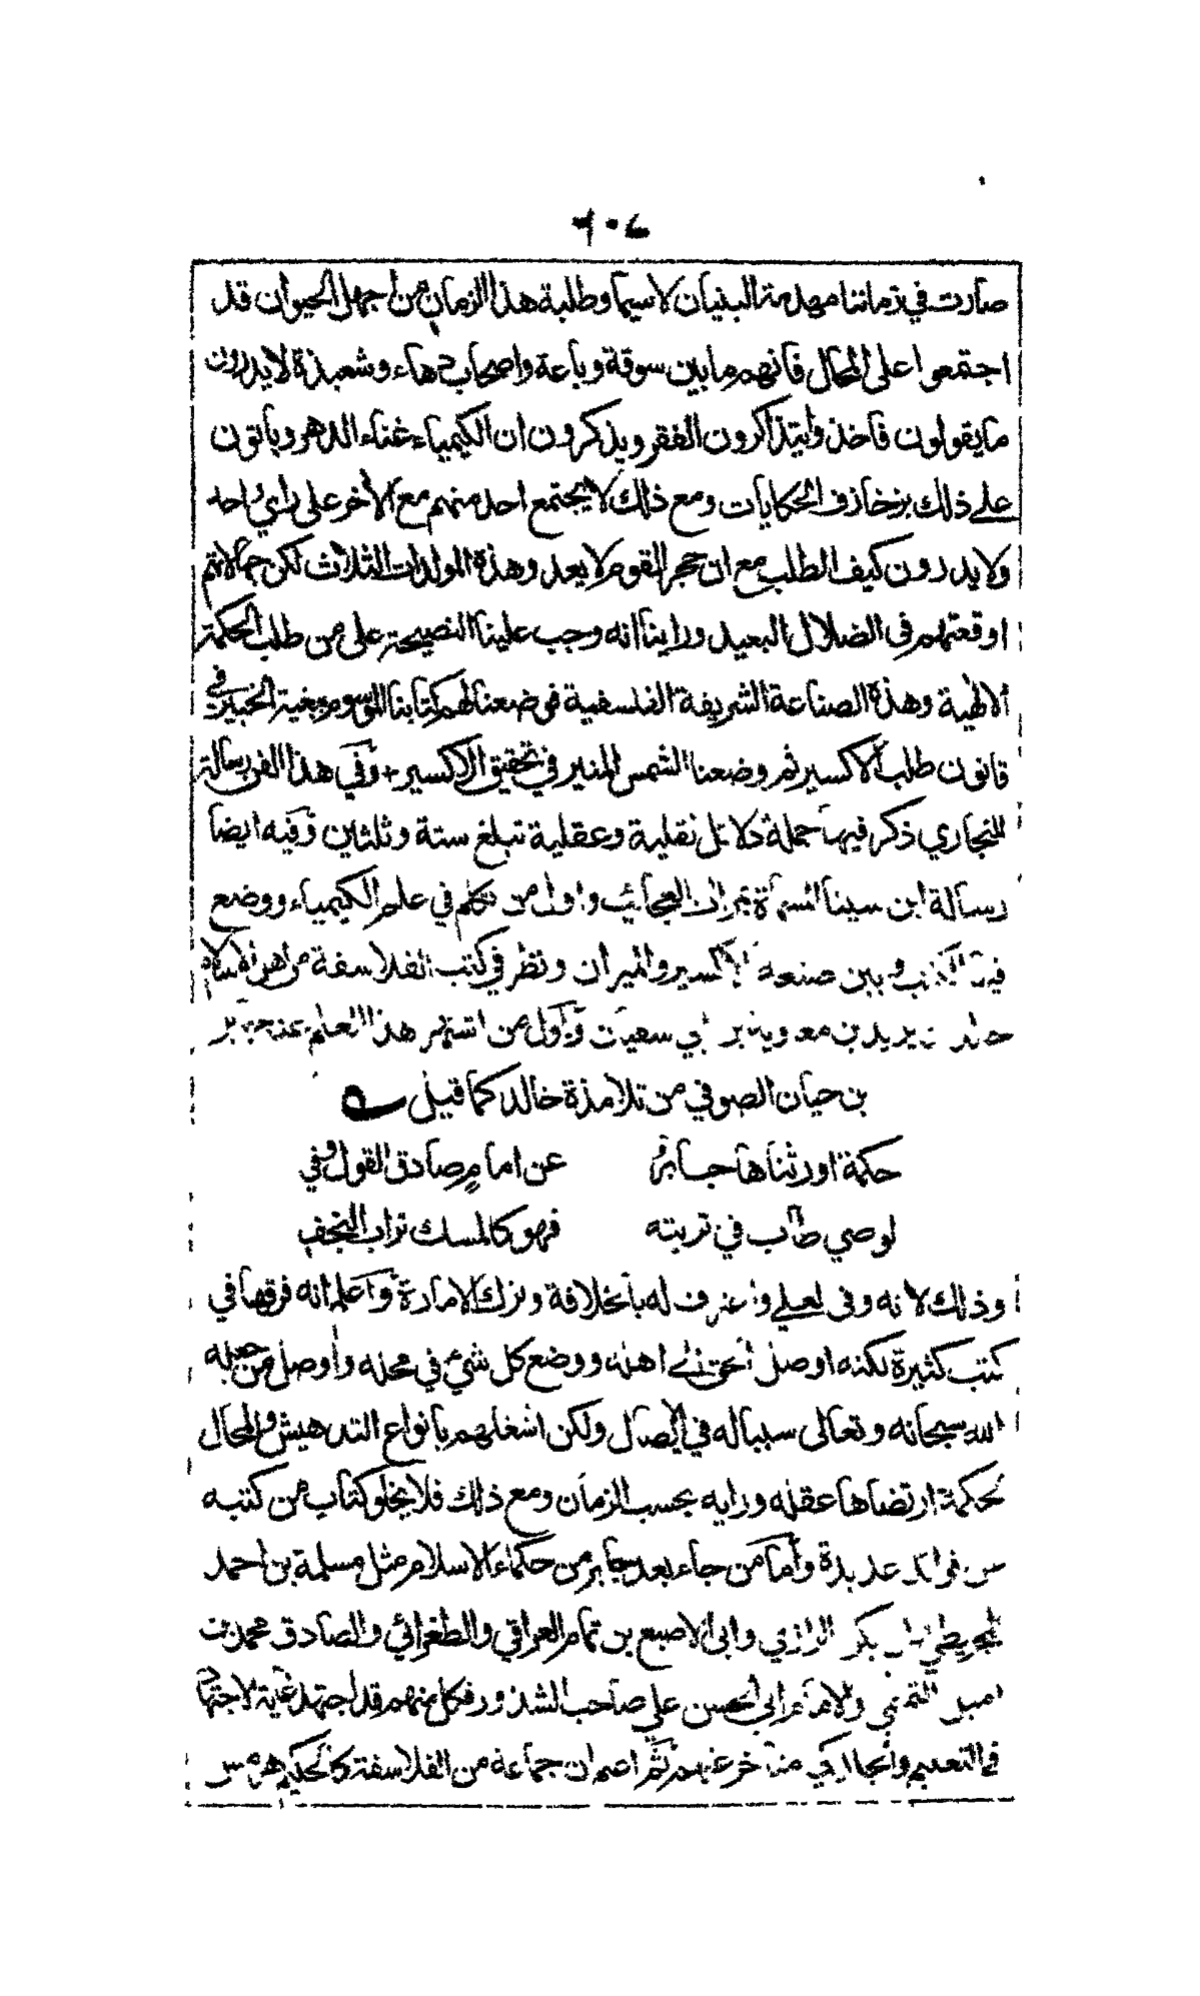 ٦٠٤
صارت في زماننا مهدمة البنيان لا سيما وطلبة هذا الزمان من اجهل الحيوان قد
اجتمعوا على المحال فانهم ما بين سوقة وباعة واصحاب دهاء وشعبذة لا يدرون
ما يقولون فاخذوا يتذاكرون الفقر ويذكرون ان الكيمياء غناء الدهر وياتون
على ذلك بزخازف الحكايات ومع ذلك لا يجتمع احد منهم مع الأخر على رائ احد
ولا يدرون كيف الطلب مع ان حجر القوم لا يعد وهذه المولدات الثلاث لكن جهالاتهم
اوقعتهم في الضلال البعيد وراينا انه وجب علينا النصيحة على من طلب الحكمة
الالهية وهذه الصناعة الشريفة الفلسفية فوضعنا لهم كتابنا الموسوم ببغية الخبير في
قانون طلب الاكسير ثم وضعنا الشمس المنير في تحقيق الاكسير + وفي هذا الفن رسالة
للنجاري ذكر فيها جملة دلائل نقلية وعقلية تبلغ ستة وثلثين وفيه ايضا
رسالة ابن سينا المسماة بمرات العجائب واول من تكلم في علم الكيمياء ووضع
فيها الكتب وبين صنعة الاكسير والميزان ونظر في كتب الفلاسفة من اهل الاسلام
خالد بن يزيد بن معوية بن ابي سفيان واول من اشتهر هذا العلم عنه جابر
بن حيان الصوفي من تلامذة خالد كما قيل
حكمة اورثناها جابر عن امام صادق القول وفي
لوصي طاب في تربته فهو كالمسك تراب النجف
وذلك لانه وفى لعلي واعترف له بالخلافة وترك الامارة واعلم انه فرقها في
كتب كثيرة لكنه اوصل الحق الى اهله ووضع كل شئ في محله واوصل من جعله
الله سبحانه وتعالى سببا له في الايصال ولكن اشغلهم بانواع التدهيش والمحال
لحكمة ارتضاها عقله ورايه بحسب الزمان ومع ذلك فلا يخلو كتاب من كتبه
من فوائد عديدة وأما من جاء بعد جابر من حكماء الاسلام مثل مسلمة بن احمد
المجريطي وابي بكر الرازي وابى الاصبع بن تمام العراقي والطغرائي والصادق محمد بن
اميل التميمي والامام ابي الحسن علي صاحب الشذور فكل منهم قد اجتهد غاية الاجتهاد
في التعليم والجلدكي متأخر عنهم ثم اعلم ان جماعة من الفلاسفة كالحكيم هرمس